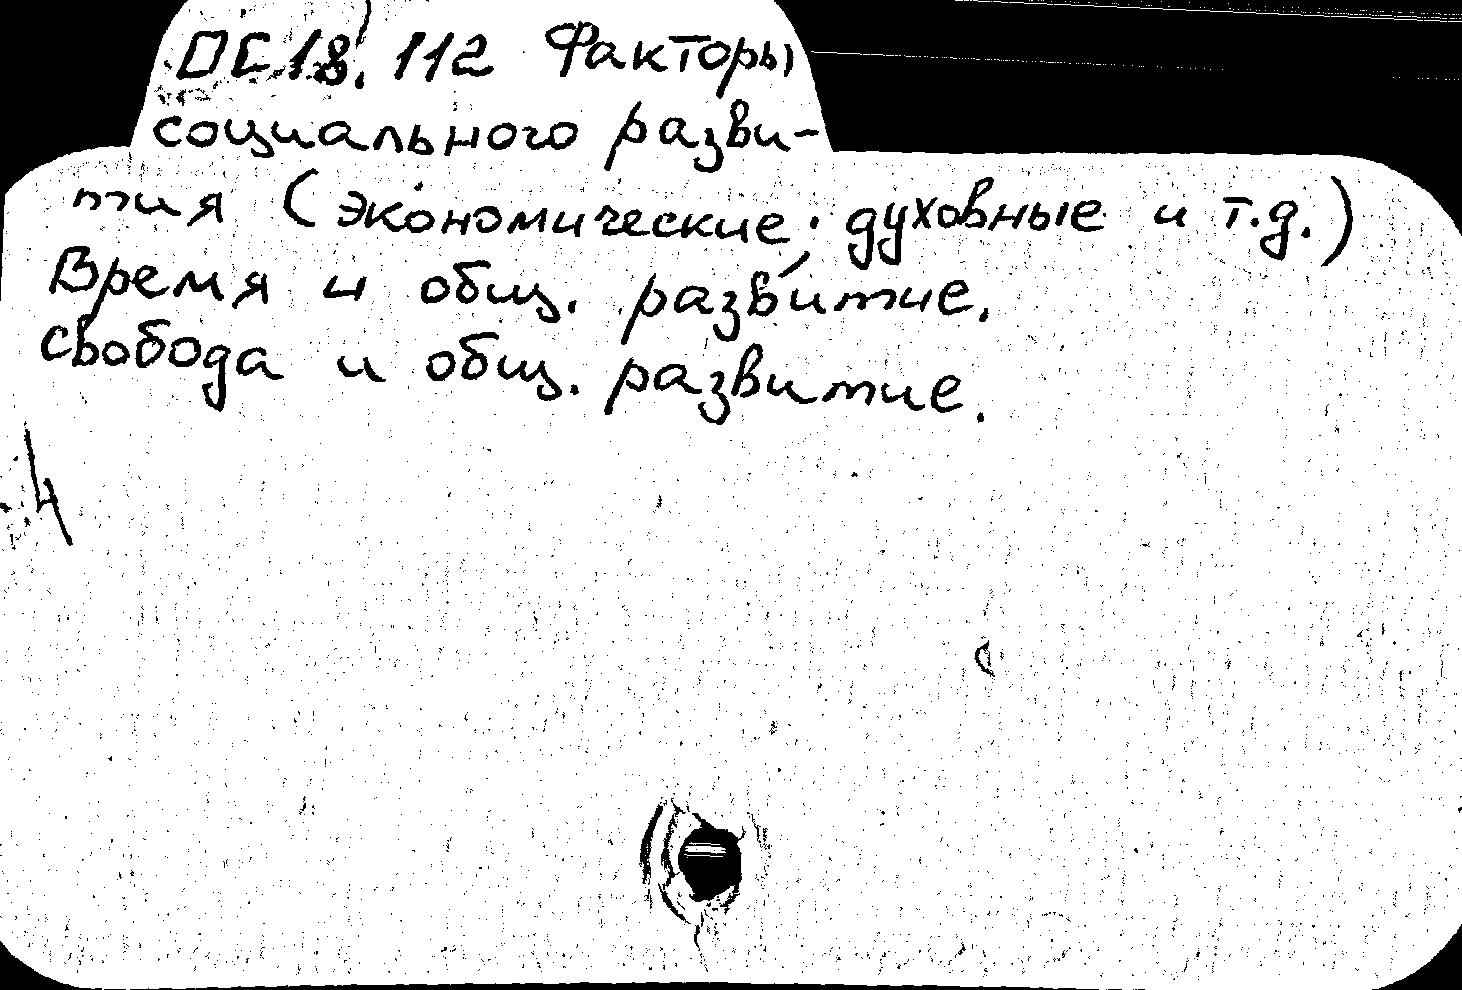 ОС18.112 Факторы
социального разви-
тия (экономические, духовные и т.д.)
Время и общ. развитие.
свобода и общ. развитие.
4